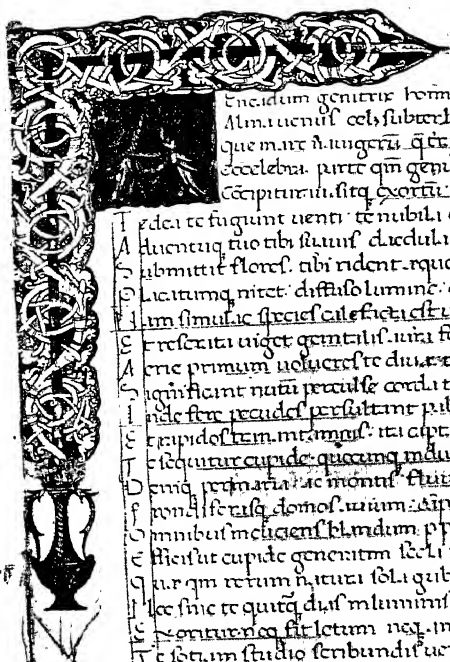 Eneadum genitrix homin
Alma uenus celi subter l
que mare nauigerū q̄ terr
cōcelebras parte qm̄ geni
Cōcipitur uisitq exortū
Te dea te fugiunt uenti te nubila c
Aduentuq tuo tibi suauis daedala
Submittit flores. tibi rident equo
Placatumq nitet diffuso lumine.
am simul ac species est u
Et reserata uiget genitalis aura f
Aerie primum uolucres te diua
Significant initū perculse corda t
Inde fere pecudes persultant pab
Et rapidos tranant amnis. ita capt
Te sequitur cupide quocunq indu
Deniq per maria ac montis fluui
frondiferasq domos auium camp
Omnibus incutiens blandum p p
Efficis ut cupide generatim secli
Que qm rerum naturā sola gub
ec sine te quicq dias in luminis
Exoritur neq fit letum neq am
Te sociam studio scribundis uer